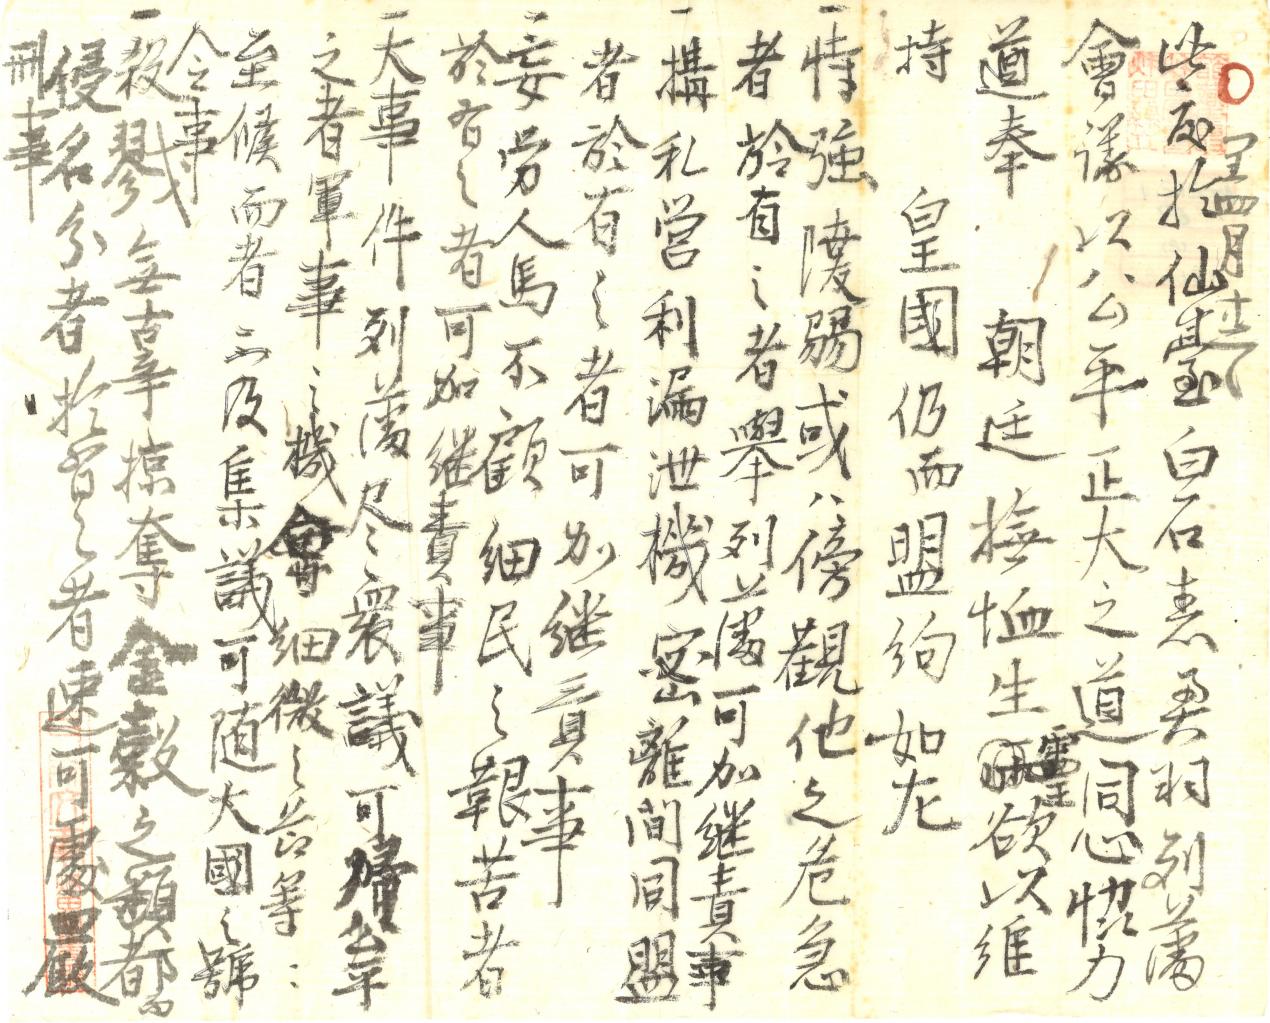 閏四月廿三日
此度於仙臺白石表奥羽列藩
會議以公平正大之道同心協力
遵奉　朝廷撫恤生靈欲以維
持　皇國仍而盟約如左
一恃強凌弱或ハ傍觀他之危急
者於有之者擧列藩可加継責事
一搆私営利漏泄機密離間同盟
者於有之者可加継責事
一妄労人馬不顧細民之艱苦者
於有之者可加継責事
一大事件列藩尽衆議可帰公平
之者軍事之機會細微之節等ニ
至候而者不及集議可随大國之號
令事
一殺戮無辜掠奪金穀之類都而
侵名分者於有之者速可處嚴
刑事